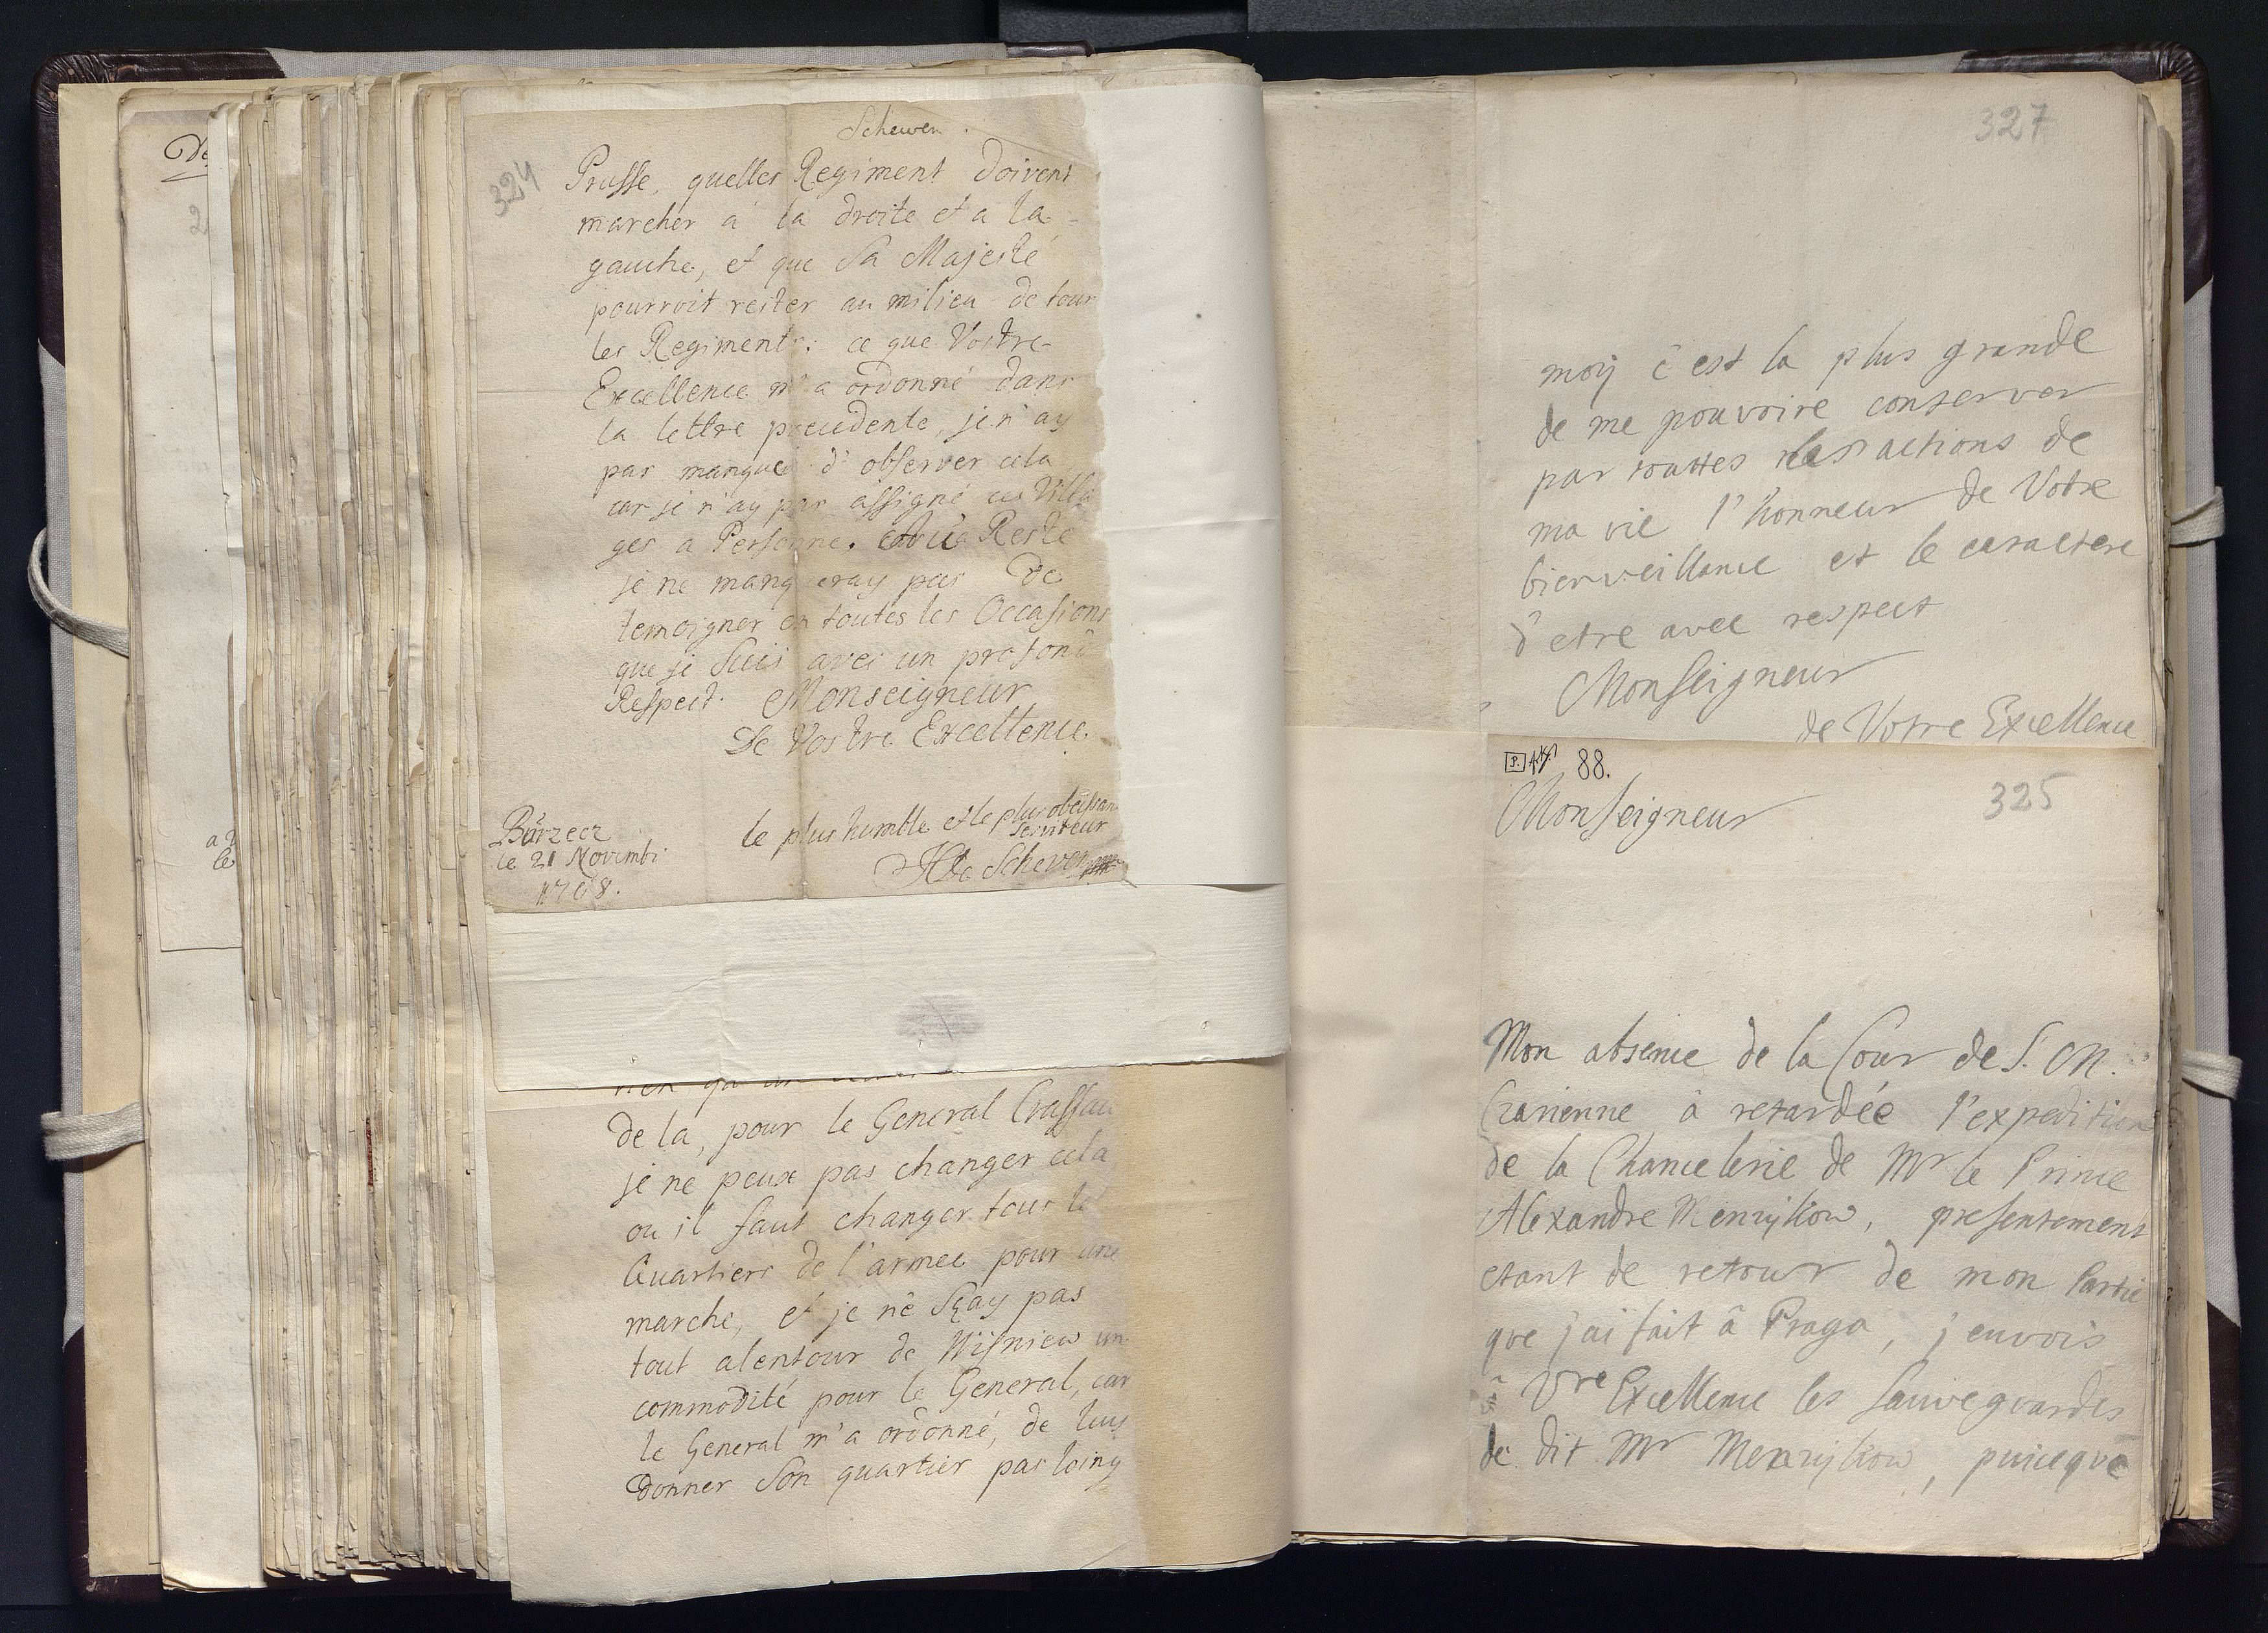 Schewen.
324
Prusse, quelles Regiment doivent
marcher a la droite et a la
gauche, et que Sa Majesté
pourroit rester au milieu de tous
les Regiments: ce que Vostre
Excellence m'a ordonné dans
la lettre precedente, je n'ay
pas manqué d'observer cela
car je n'ay pas assigné ces Villa
ges a Personne. Reste
je ne manqueray pas de
temoigner en toutes les Occasions
que je suis avec un profond
Respect. Monseigneur
De Vostre Excellence
le plus humble et le plus obeissan
serviteur
Schewen
Bärzecz
le 21 Novembr
1708.
de la, pour le General Crassau
je ne peux pas changer cela
ou il faut changer tous le
Quartiers de l'armee pour une
marche, et je ne sçay pas
tout alentour de Wisniew un
commodité pour le General, car
le General m'a ordonné, de luy
donner son quartier pas loing
327
moy c'est la plus grande
de me pouvoire conserver
par touttes les actions de
ma vie l'honneur de Votre
bienveillance et le caractere
d'etre avec respect
Monseigneur
de Votre Excellence
P. 88.
325
Monseigneur
Mon absence de la Cour de S. M.
Czarienne à retardée l'expedition
de la Chancelerie de Mr le Prince
Alexandre Menzykow, presentement
etant de retour de mon Partie
que j'ai fait â Praga, j'envois
â Vre Excellence les sauveguardes
de dit Mr Menzykow, puiceque